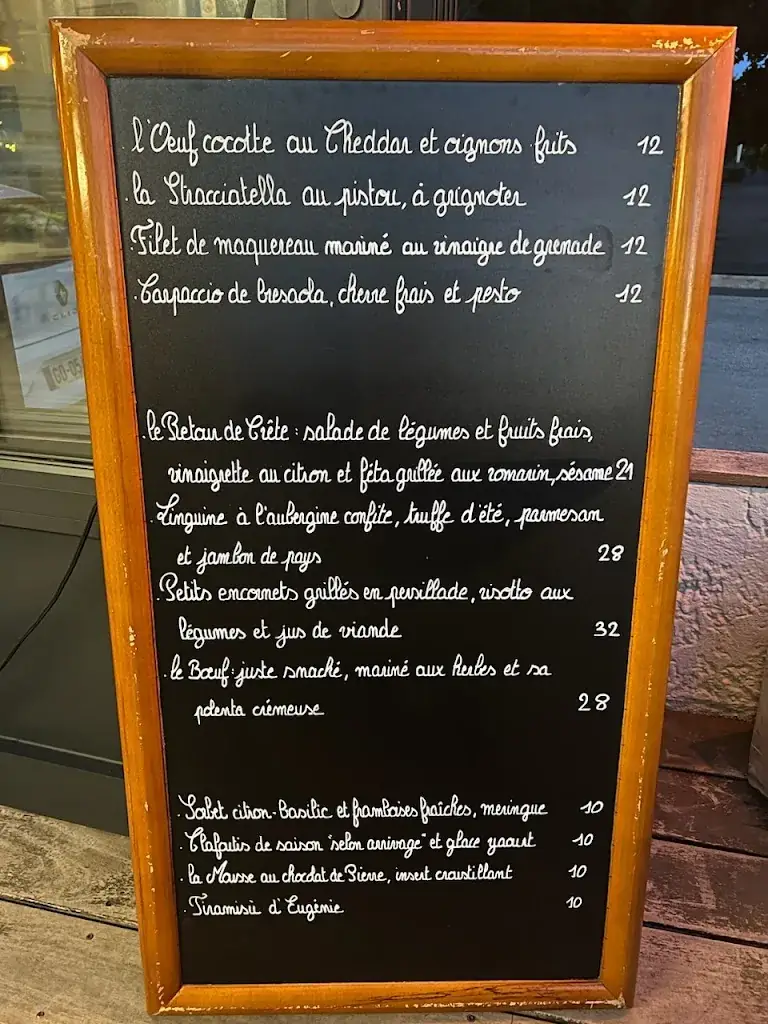 . l'Oeuf cocotte au Cheddar et oignons frits 12
. la Stracciatella au pistou, à grignoter 12
. Filet de maquereau mariné au vinaigre de grenade 12
. Carpaccio de bresaola, chevre frais et pesto 12
. le Retour de Crête : salade de légumes et fruits frais,
vinaigrette au citron et féta grillée aux romarin, sésame 21
. Linguine à l'aubergine confite, truffe d'été, parmesan
et jambon de pays 28
. Petits encornets grillés en persillade, risotto aux
légumes et jus de viande 32
. le Bœuf : juste snaché, mariné aux herbes et sa
polenta crémeuse 28
. Sorbet citron-Basilic et framboises fraîches, meringue 10
. Clafoutis de saison "selon arrivage" et glace yaourt 10
. la Mousse au chocolat de Pierre, insert croustillant 10
. Tiramisù d'Eugénie 10